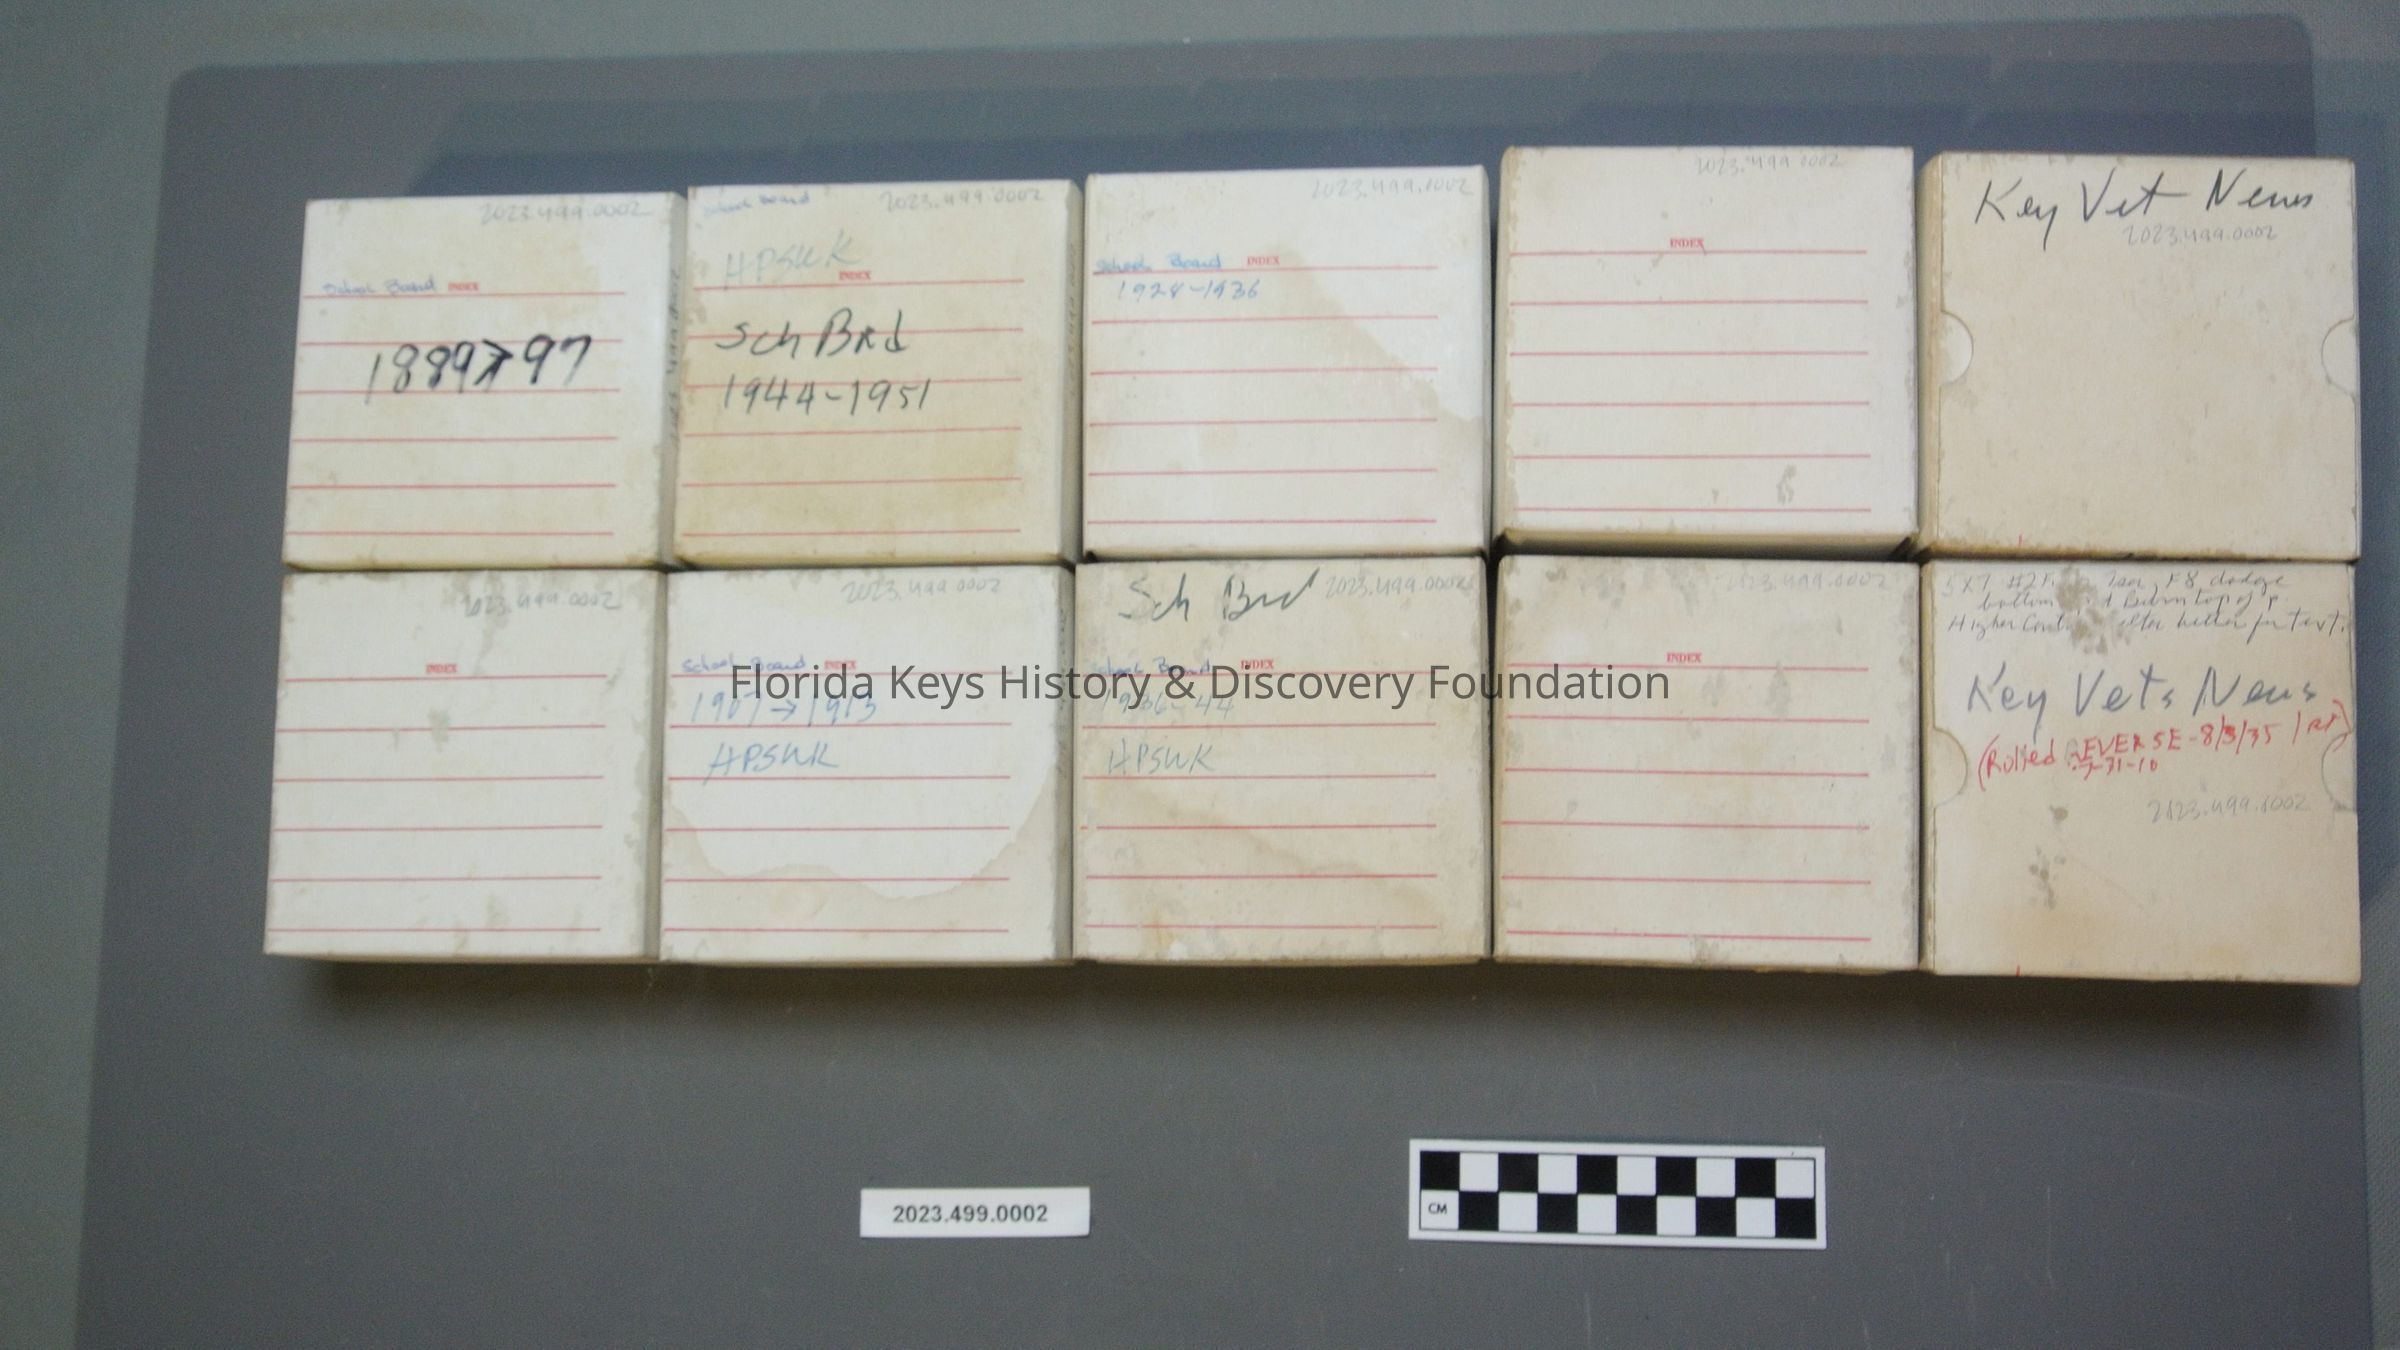 2023.499.0002
School Board INDEX
1889→97
School Board 2023.499.0002
HPSWK
INDEX
Sch Brd
1944-1951
2023.499.0002
School Board INDEX
1924-1936
2023.499.0002
INDEX
Key Vet News
2023.499.0002
2023.499.0002
INDEX
2023.499.0002
School Board INDEX
1907→1913
HPSWK
Sch Brd 2023.499.0002
School Board INDEX
1936-44
HPSWK
2023.499.0002
INDEX
5X7 #2 F8 dodge
bottom top of p.
Higher better for text.
Key Vets News
(Rolled REVERSE-8/3/35 1st)
2023.499.0002
Florida Keys History & Discovery Foundation
2023.499.0002
CM